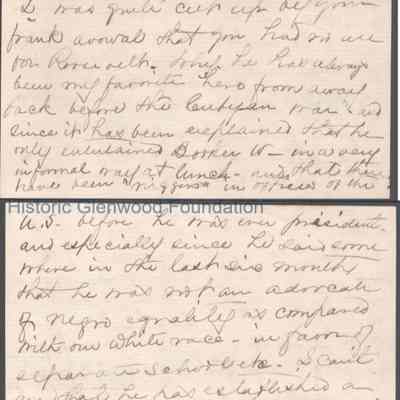 I was quite cut up by your
frank avowal that you had no use
for Roosevelt. Why he has always
been my favorite hero from away
back before the Cuban war - and
since it has been explained that he
only entertained Booker W - in a very
informal way at lunch - and that there
have been "niggers" in offices of the
Historic Glenwood Foundation
U.S. before he was ever president -
and especially since he said some
where in the last six months
that he was not an advocate
of negro equality as compared
with our white race - in favor of
separate schools etc. I can't
see that he has established an